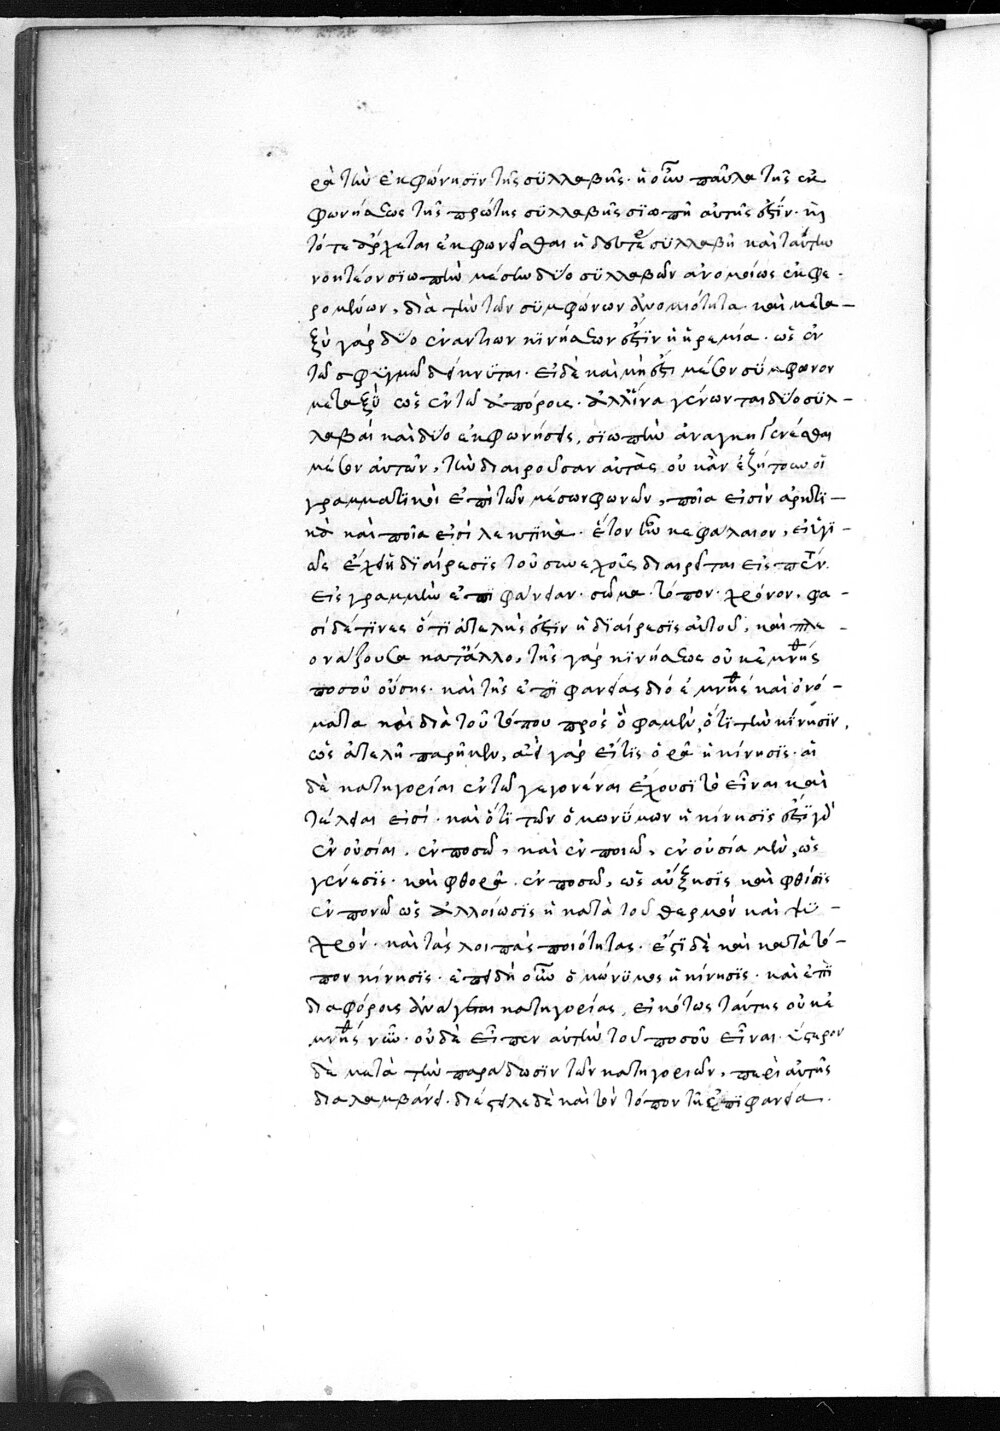 ρὰ τὴν ἐκφώνησϊν τῆς σϋλλαβῆς· ἡ οὖν παῦλα τῆς ἐκ
φωνήσεως τῆς πρώτης σϋλλαβῆς σϊωπὴ αὐτῆς ἐστϊν·
τότε ἄρχεται ἐκφωνεῖσθαι ἡ δευτέρα σϋλλαβὴ καὶ ταύτην
νοητέον σϊωπὴν μέσην δύο σϋλλαβῶν ἀνομοίως ἐκφε-
ρομένων, διὰ τὴν τῶν σϋμφώνων ἀνομοιότητα καὶ μετα-
ξὺ γὰρ δύο ἐναντίων κϊνήσεων ἐστὶν ἡ ἠρεμία· ὡς ἐν
τῶ σφϋγμῶ δείκνϋται· εἰ δὲ καὶ μή ἐστι μέσον σύμφωνον
μεταξὺ ὡς ἐν τῶ ἄπορος· ἀλλ' ἵνα γένωνται δύο σϋλ-
λαβαὶ καὶ δύο ἐκφωνήσεις, σϊωπὴν ἀνάγκη γενέσθαι
μέσον αὐτῶν, τὴν διαιροῦσαν αὐτὰς οὐκ ἂν ἐζήτουν οἱ
γραμματϊκοὶ ἐπὶ τῶν μέσων φωνῶν, ποῖα εἰσὶν ἀρκτϊ-
κὰ καὶ ποῖα εἰσὶ ληκτϊκά· κεφάλαιον, εἰ ὑγι-
ὴς ἔχει ἡ διαίρεσϊς τοῦ συνεχοῦς διαιρεῖται εἰς πέντε
εἰς γραμμὴν ἐπϊφάνειαν· σῶμα· τόπον· χρόνον· φα-
σὶ δέ τϊνες ὅτι ἀτελής ἐστϊν ἡ διαίρεσϊς αὐτοῦ, καὶ πλε-
ονάζουσα κατ' ἄλλο, τῆς γὰρ κϊνήσεως οὐκ ἐμνήσθη
ποσοῦ οὔσης· καὶ τῆς ἐπϊφανείας διὸ ἐμνήσθη καὶ ὀνό-
ματα καὶ διὰ τοῦ τόπου πρὸς ὅ φαμεν, ὅτι τὴν κίνησϊν,
ὡς ἀτελῆ παρῆκεν, ἀεὶ γὰρ εἰς ὁρᾶ ἡ κίνησϊς· αἱ
δὲ κατηγορίαι ἐν τῶ γεγονέναι ἔχουσϊ τὸ εἶναι καὶ
τέλειαι εἰσί· καὶ ὅτι τῶν ὁμωνύμων ἡ κίνησϊς ἐστὶ γὰρ
ἐν οὐσίαι, ἐν ποσῶ, καὶ ἐν ποιῶ, ἐν οὐσία μὲν, ὡς
γένεσϊς· καὶ φθορά· ἐν ποσῶ, ὡς αὔξησϊς καὶ φθίσϊς
ἐν ποιῶ ὡς ἀλλοίωσϊς ἡ κατὰ τοῦ θερμὸν καὶ ψϋ-
χρόν· καὶ τὰς λοιπὰς ποιότητας· ἔστϊ δὲ καὶ κατὰ τό-
πον κίνησϊς· ἐπειδὴ οὖν ὁμώνϋμος ἡ κίνησϊς· καὶ ἐπὶ
διαφόροις ἀνάγεται κατηγορίας, εἰκότως ταύτης οὐκ ἐ
μνήσθη νῦν· οὐδὲ εἶπεν αὐτὴν τοῦ ποσοῦ εἶναι· ὕστερον
δὲ μετὰ τὴν παράδωσϊν τῶν κατηγορϊῶν, περὶ αὐτῆς
διαλαμβάνει· διέστειλε δὲ καὶ τὸν τόπον τῆ ἐπϊφανεία.